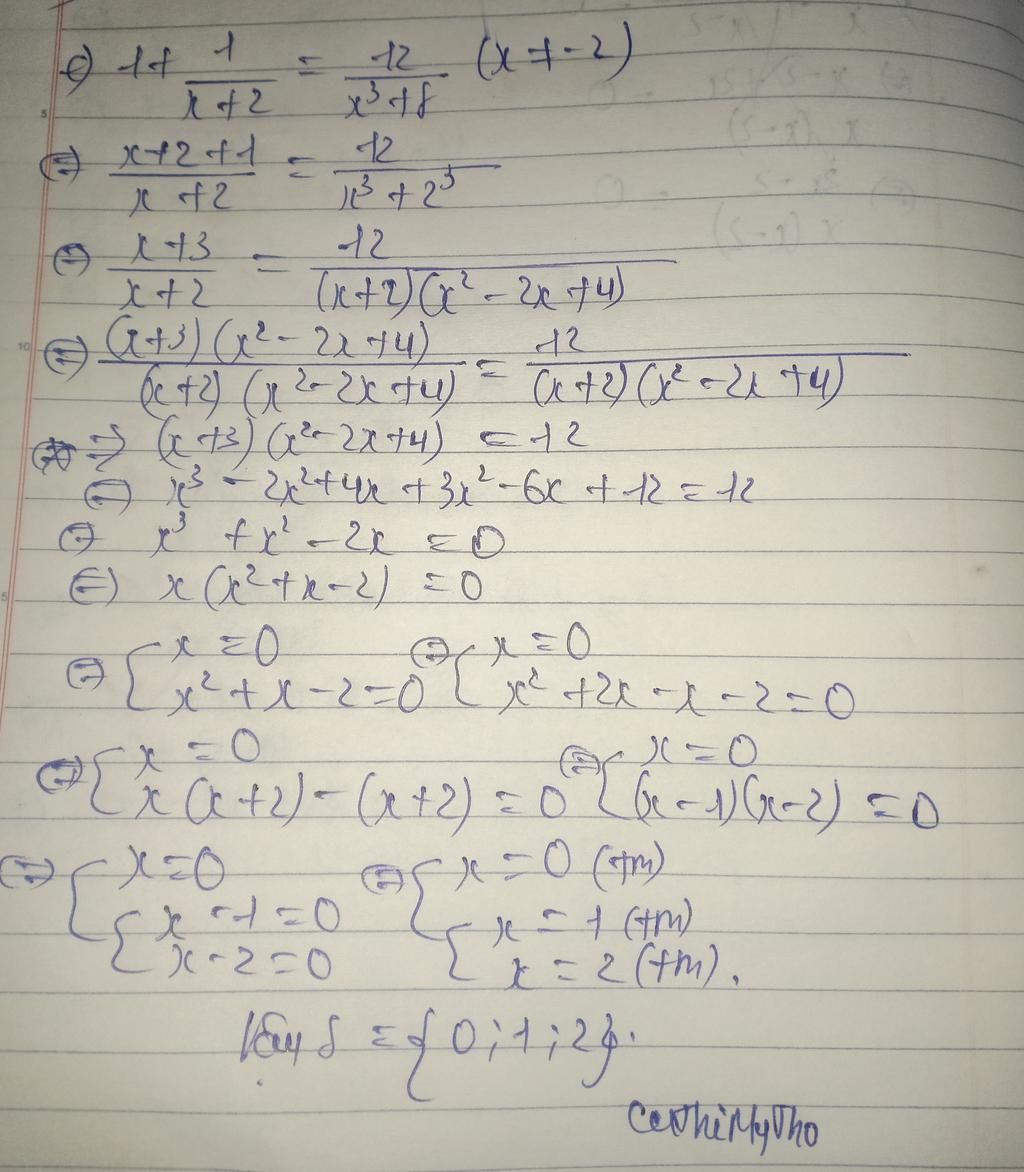 c) 1 + 1/(x+2) = 12/(x³+8) (x ≠ -2)
⇔ (x+2+1)/(x+2) = 12/(x³+2³)
⇔ (x+3)/(x+2) = 12/((x+2)(x²-2x+4))
⇔ ((x+3)(x²-2x+4))/((x+2)(x²-2x+4)) = 12/((x+2)(x²-2x+4))
⇒ (x+3)(x²-2x+4) = 12
⇔ x³ - 2x² + 4x + 3x² - 6x + 12 = 12
⇔ x³ + x² - 2x = 0
⇔ x(x² + x - 2) = 0
⇔ { x = 0 ⇔ { x = 0
x² + x - 2 = 0 x² + 2x - x - 2 = 0
⇔ { x = 0 ⇔ { x = 0
x(x+2) - (x+2) = 0 (x-1)(x-2) = 0
⇔ { x = 0 ⇔ { x = 0 (tm)
{ x - 1 = 0 { x = 1 (tm)
x - 2 = 0 x = 2 (tm).
Vậy S = {0; 1; 2}.
CaothiMyTho